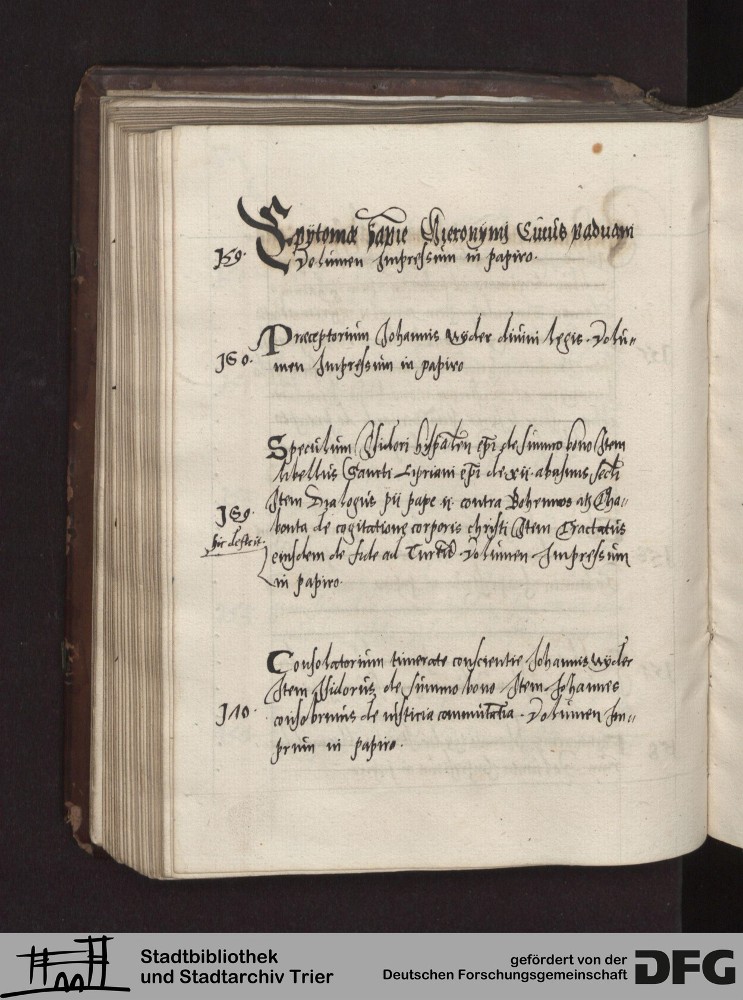 Epÿtoma sapie Hieronymj Cuiús paduani
J59. Volúmen Impressúm in papiro.
Præceptoriúm Johannis nÿder diuini legis. Volú=
J60. men Impressúm in papiro
Specúlúm Jsidori hyspaleñ epi de súmmo bono Jtem
libellús Sancti Cipriani epi de xii abúsiuis secli
Jtem Dialogús pii pape ii contra Bohemos ac Tha=
J69. borita de cogitatione corporis christi Jtem Tractatús
hic desicit. eiúsdem de fide ad Túrcú Volúmen Jmpressúm
in papiro.
Consolatoriúm timerate conscientie Johannis nÿder
Jtem Jsidorús de súmmo bono Jtem Johannes
J10. consobrinús de iústicia commútatia. Volúmen Jm=
prsúm in papiro.
Stadtbibliothek
und Stadtarchiv Trier
gefördert von der
Deutschen Forschungsgemeinschaft
DFG